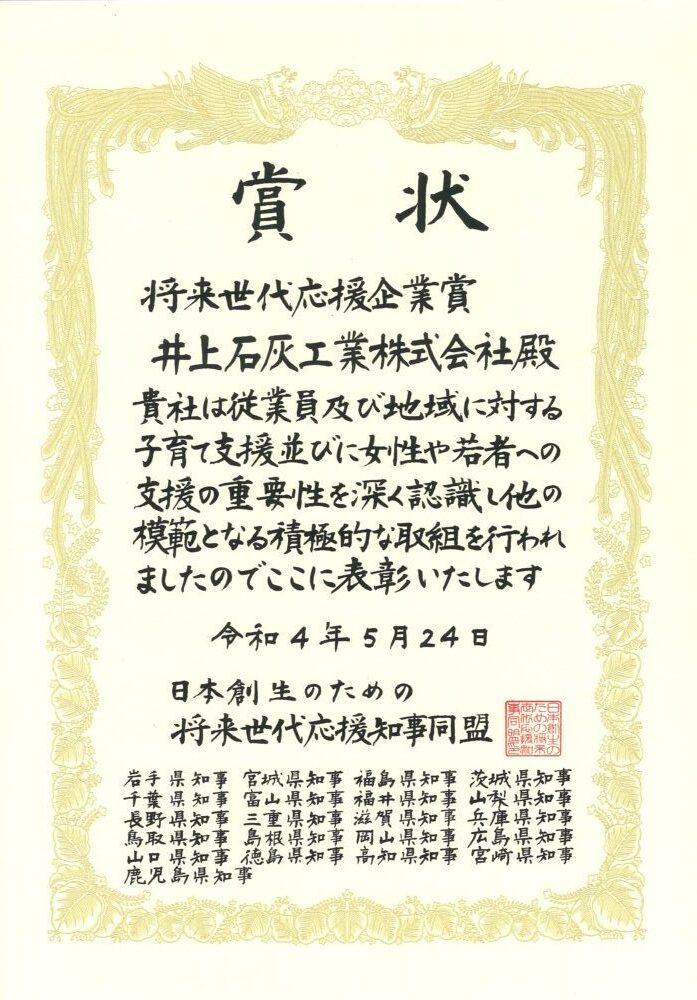 賞状
将来世代応援企業賞
井上石灰工業株式会社殿
貴社は従業員及び地域に対する
子育て支援並びに女性や若者への
支援の重要性を深く認識し他の
模範となる積極的な取組を行われ
ましたのでここに表彰いたします
令和4年5月24日
日本創生のための
将来世代応援知事同盟
日本創生の
ための将来
世代応援知
事同盟印
岩手県知事 宮城県知事 福島県知事 茨城県知事
千葉県知事 富山県知事 福井県知事 山梨県知事
長野県知事 三重県知事 滋賀県知事 兵庫県知事
鳥取県知事 島根県知事 岡山県知事 広島県知事
山口県知事 徳島県知事 高知県知事 宮崎県知事
鹿児島県知事